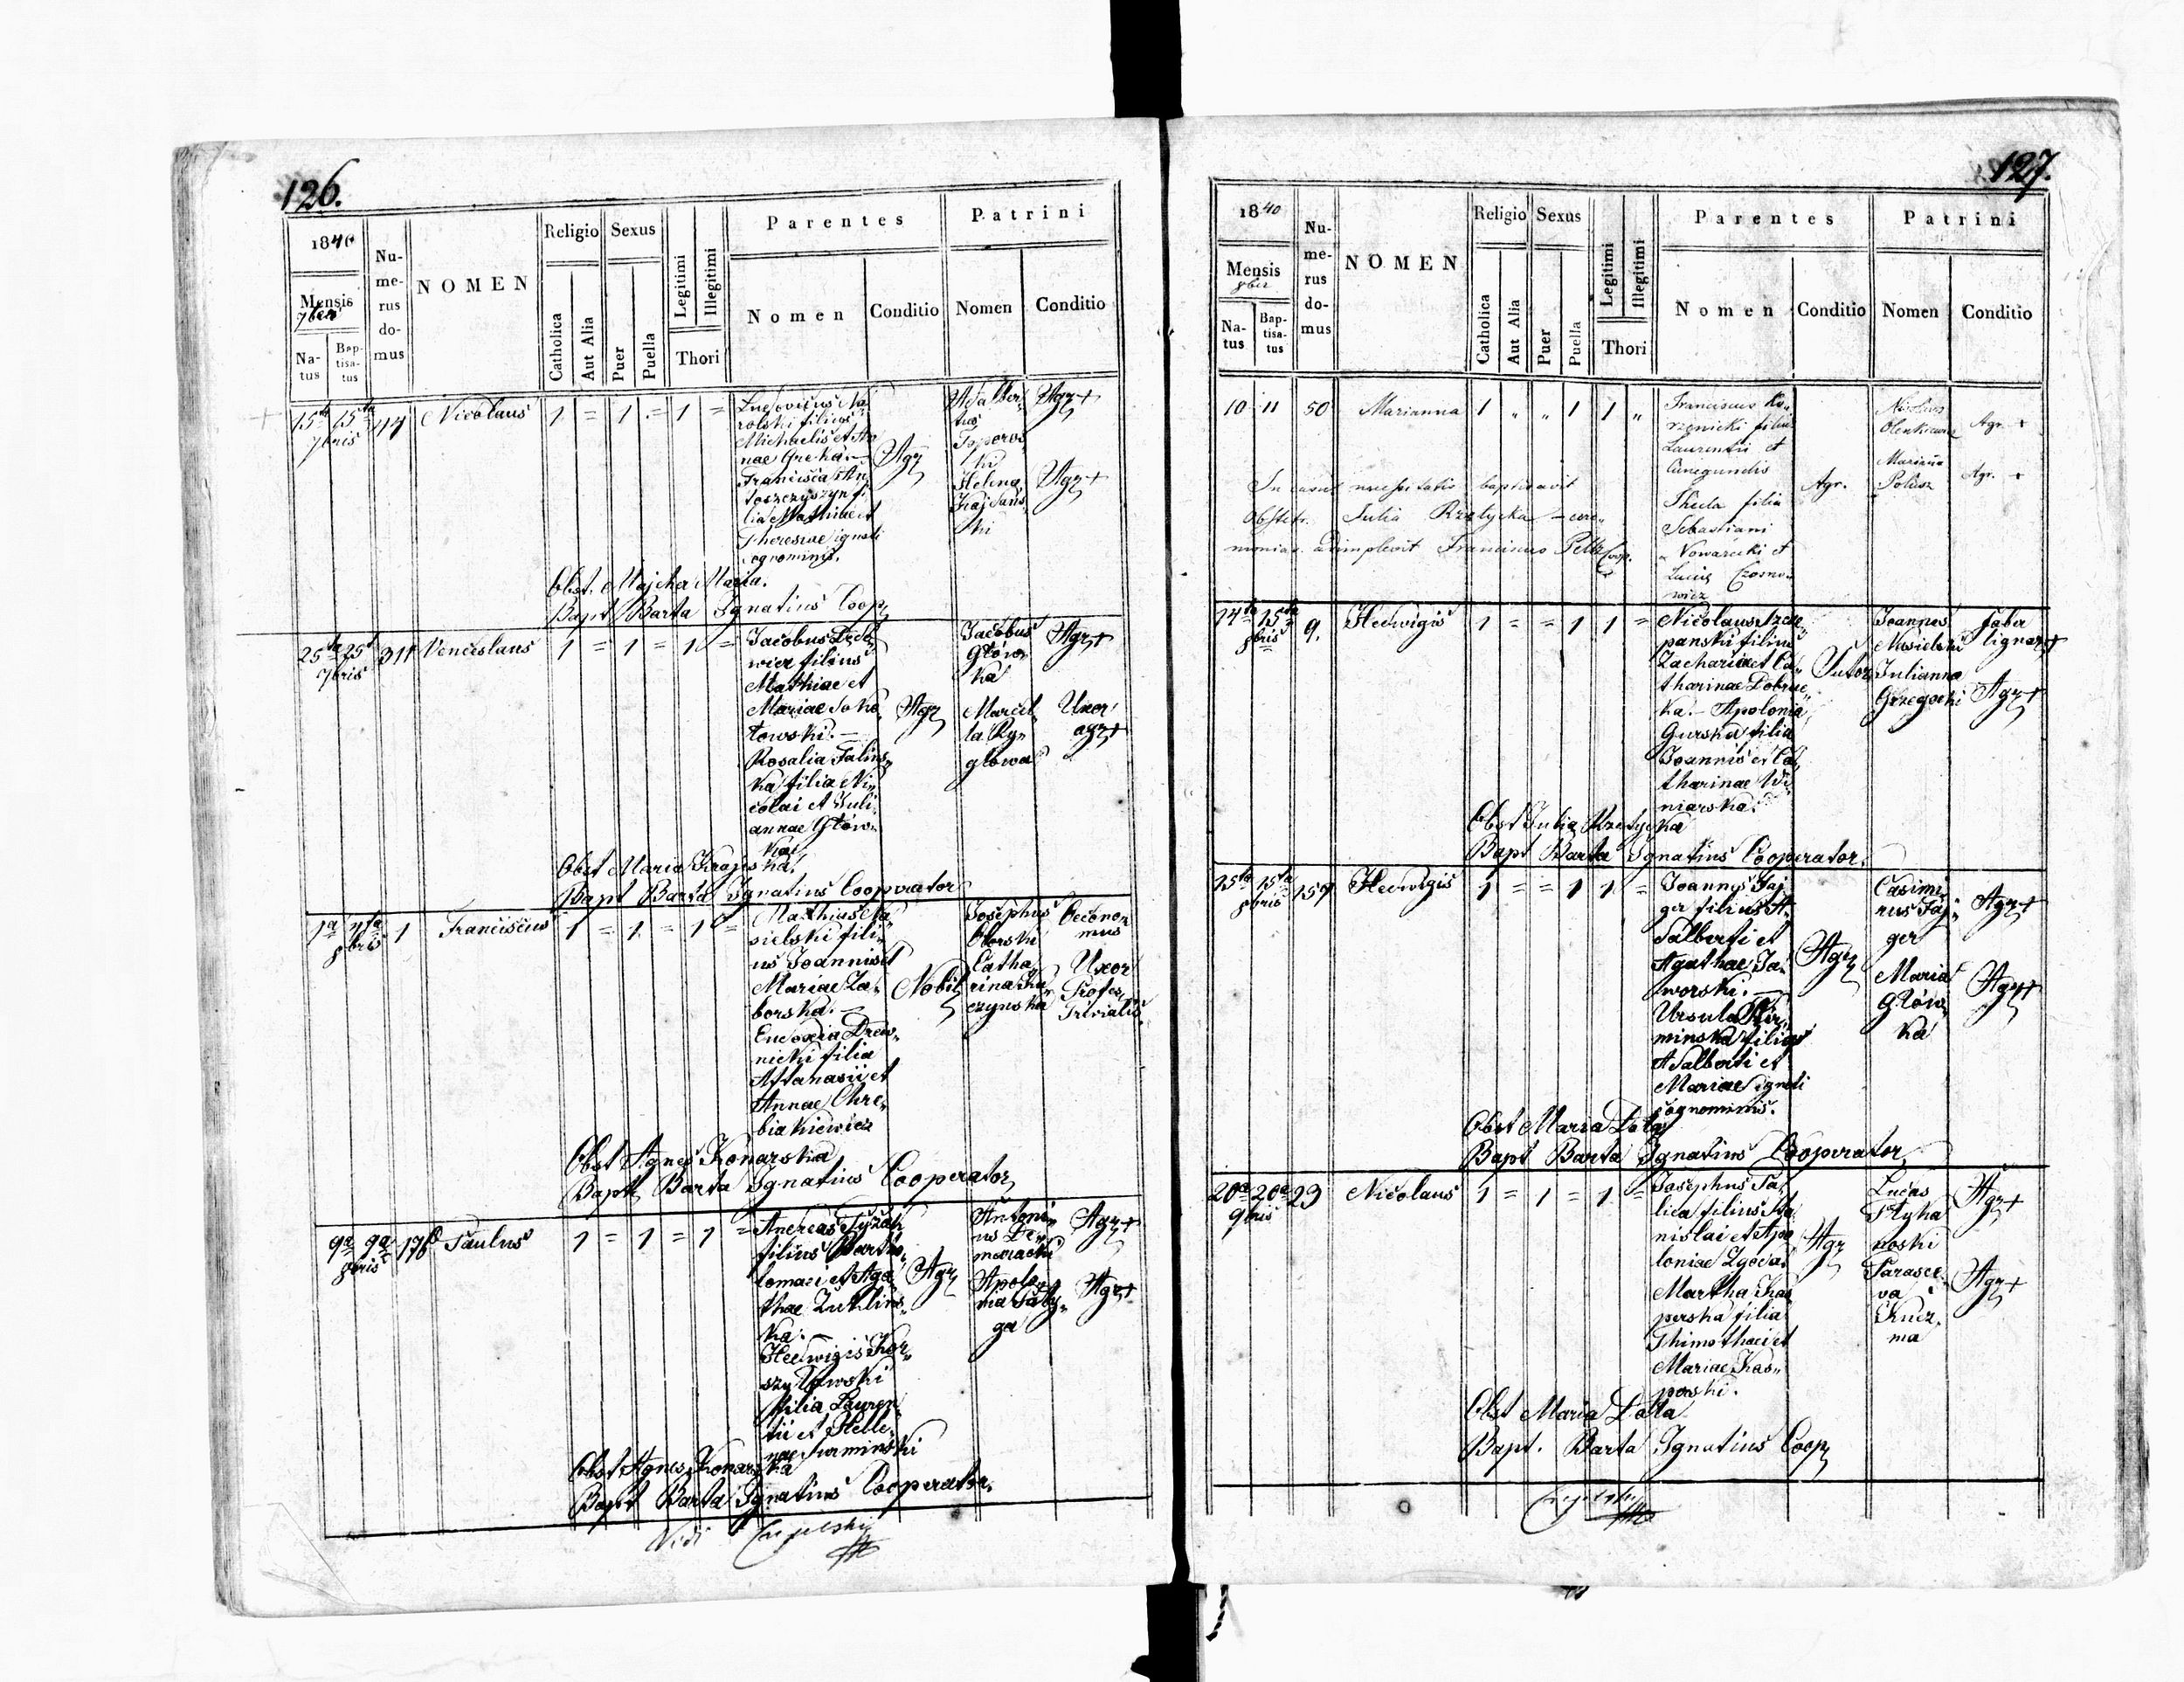 126.
1840
Mensis
7bris
Na-
tus
Bap-
tisa-
tus
Nu-
me-
rus
do-
mus
NOMEN
Religio
Catholica
Aut Alia
Sexus
Puer
Puella
Legitimi
Illegitimi
Thori
Parentes
Nomen
Conditio
Patrini
Nomen
Conditio
15ta 15ta
7bris
Nicolaus
1 = 1 = 1 =
rolski filius
Michaelis et An
nae
Francisca An
toszczyszyn fi
lia Mathiae et
Theresiae ignoti
cognominis.
Agr
Adalber
tus
Helena
Kajdans
ki
Agr +
Agr +
Obst. Majcher Maria.
Bapt Barta Ignatius Coop
25ta 25t
7bris
311
Venceslaus
1 = 1 = 1 =
Jacobus
wicz filius
Mathiae et
Mariae Soko
towski. —
Rosalia Falins
ka filia Ni
colai et Juli
annae Głów
ka.
Agr
Jacobus
Głów
ka
Marcel
la Ry
głowa
Agr +
Uxor
agr +
Obst Maria Krajoska.
Bapt Barta Ignatius Cooperator
1a
8bris
1
Franciscus
1 = 1 = 1 =
Mathias Ki
sielski fili
us Joannis et
Mariae Za
borska. —
Eudoxia Drew
nicki filia
Attanasii et
Annae Chre
biakiewicz
Nobil
Josephus
Oborski
Catha
rina Ku
czynska
Oecono
mus
Uxor
Profes
Trivialis.
Obst Agnes Konarska
Bapt Barta Ignatius Cooperator
9a 9a
8bris
176
Paulus
1 = 1 = 1 =
Andreas Tyzak
filius Bartho
lomaei et Aga
thae Zuklins
ka. —
Hedwigis Kor
szyłowski
filia Lauren
tii et Helle
nae Surminski
Agr
Antoni
us De
meracki
Apolo
nia Saty
ga
Agr +
Agr +
Obst Agnes Konarska
Bapt Barta Ignatius Cooperator.
Vidi
127.
1840
Mensis
8ber
Na-
tus
Bap-
tisa-
tus
Nu-
me-
rus
do-
mus
NOMEN
Religio
Catholica
Aut Alia
Sexus
Puer
Puella
Legitimi
Illegitimi
Thori
Parentes
Nomen
Conditio
Patrini
Nomen
Conditio
10 11
50
Marianna
1 " " 1 1 "
Franciscus Ko
rzenicki filius
Laurentii et
Cunegundis
Thecla filia
Sebastiani
Nowarecki et
Luciae Czosno
wicz
Agr.
Nicolaus
Olenkiewicz
Marianna
Polusz
Agr. +
Agr. +
In casu necessitatis baptisavit
Obstetr. Julia Rzetycka — cere
monias adimplevit Franciscus Peltz Coop.
14ta 15ta
8bris
9.
Hedwigis
1 = = 1 1 =
Nicolaus Szcze
panski filius
Zachariae et Ca
tharinae Dobruc
ka. — Apolonia
Gurska filia
Joannis et Ca
tharinae Wi
niarska.
Sutor
Joannes
Musielski
Julianna
Grzegocki
Faber
lignar +
Agr +
Obst Julia Rzetycka
Bapt Barta Ignatius Cooperator.
15ta 15ta
8bris
159
Hedwigis
1 = = 1 1 =
Joannes Jaj
ger filius A
dalberti et
Agathae Ja
worski. —
Ursula Kir
minska filia
Adalberti et
Mariae ignoti
cognominis.
Agr
Casimi
rus Jaj
ger
Maria
Głów
ka
Agr +
Agr +
Obst Maria Lata
Bapt Barta Ignatius Cooperator
20a 20a
9bris
23
Nicolaus
1 = 1 = 1 =
Josephus Pa
lica filius Sta
nislai et Apo
loniae Zgoda.
Martha Kas
perska filia
Thimothaei et
Mariae Kas
perski.
Agr
Lucas
Ptyha
noski
Parasce
va
Kucz
ma
Agr +
Agr +
Obst Maria Lata
Bapt. Barta Ignatius Coop